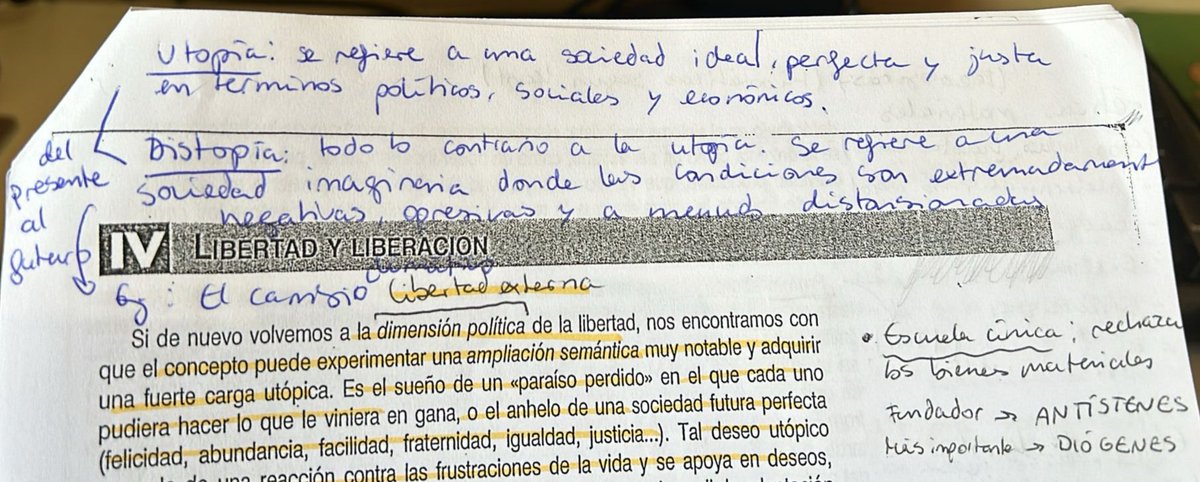 Utopía: se refiere a una sociedad ideal, perfecta y justa
en terminos políticos, sociales y económicos.
Distopía: todo lo contraño a la utopía. Se refiere a una
sociedad imagineria donde las condiciones son extremadament
negativas, opresivas y a menudo distorsionadas
del
presente
al
futuro
IV LIBERTAD Y LIBERACIÓN
Eg: El cambio climático
libertad externa
Si de nuevo volvemos a la dimensión política de la libertad, nos encontramos con
que el concepto puede experimentar una ampliación semántica muy notable y adquirir
una fuerte carga utópica. Es el sueño de un «paraíso perdido» en el que cada uno
pudiera hacer lo que le viniera en gana, o el anhelo de una sociedad futura perfecta
(felicidad, abundancia, facilidad, fraternidad, igualdad, justicia...). Tal deseo utópico
de una reacción contra las frustraciones de la vida y se apoya en deseos,
• Escuela cínica: rechaza
los bienes materiales
Fundador → ANTÍSTENES
Más importante → DIÓGENES